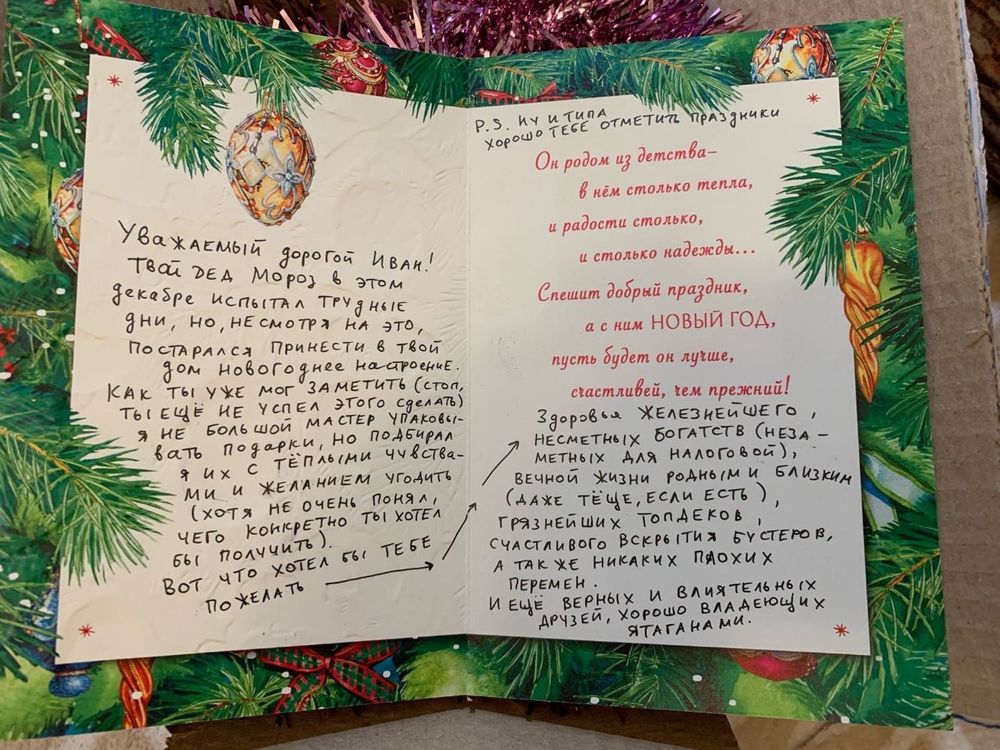 Уважаемый дорогой Иван!
Твой Дед Мороз в этом
декабре испытал трудные
дни, но, несмотря на это,
постарался принести в твой
дом новогоднее настроение.
Как ты уже мог заметить (стоп,
ты ещё не успел этого сделать)
я не большой мастер упаковы-
вать подарки, но подбирал
я их с тёплыми чувства-
ми и желанием угодить
(хотя не очень понял,
чего конкретно ты хотел
бы получить).
Вот что хотел бы тебе
пожелать
P.S. Ну и типа
хорошо тебе отметить праздники
Он родом из детства–
в нём столько тепла,
и радости столько,
и столько надежды...
Спешит добрый праздник,
а с ним НОВЫЙ ГОД,
пусть будет он лучше,
счастливей, чем прежний!
Здоровья железнейшего,
несметных богатств (неза-
метных для налоговой),
вечной жизни родным и близким
(даже тёще, если есть),
грязнейших топдеков,
счастливого вскрытия бустеров,
а так же никаких плохих
перемен.
И ещё верных и влиятельных
друзей, хорошо владеющих
ятаганами.